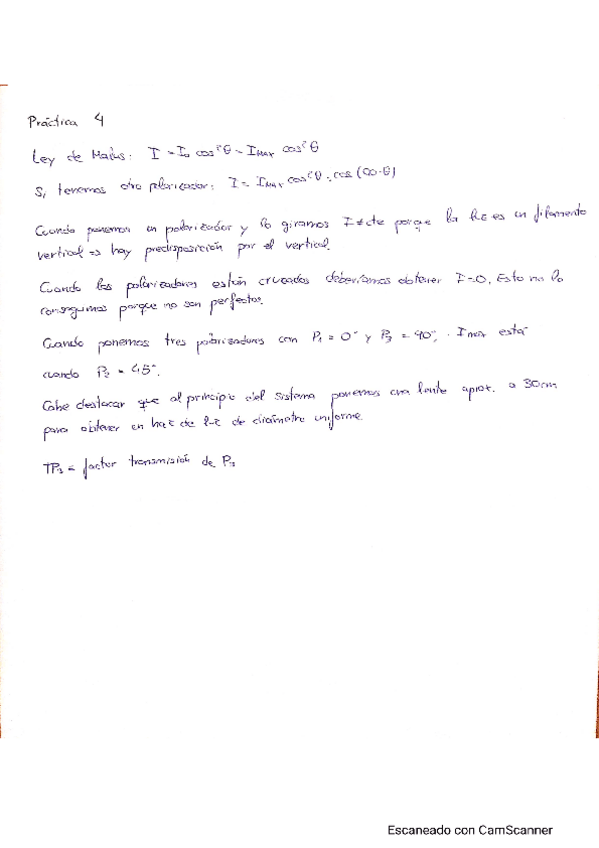 Práctica 4
Ley de Malus: I = I₀ cos²θ = Imax cos²θ
Si tenemos otro polarizador: I = Imax cos²θ · cos (90-θ)
Cuando ponemos un polarizador y lo giramos I ≠ cte porque la luz es un filamento
vertical => hay predisposición por el vertical.
Cuando los polarizadores están cruzados deberíamos obtener I=0. Esto no lo
conseguimos porque no son perfectos.
Cuando ponemos tres polarizadores con P₁ = 0° y P₃ = 90°, Imax está
cuando P₂ = 45°.
Cabe destacar que al principio del sistema ponemos una lente aprox. a 30cm
para obtener un haz de luz de diámetro uniforme.
TP₃ = factor transmisión de P₃
Escaneado con CamScanner